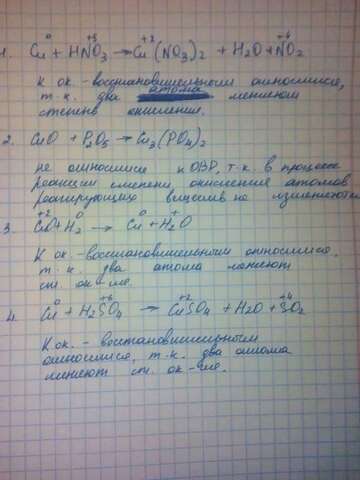 1. Cu⁰ + HN⁺⁵O₃ → Cu⁺²(NO₃)₂ + H₂O + N⁺⁴O₂
К ок.-восстановительным относится,
т.к. два атома меняют
степень окисления.
2. CuO + P₂O₅ → Cu₃(PO₄)₂
не относится к ОВР, т.к. в процессе
реакции степени окисления атомов
реагирующих веществ не изменяются
3. Cu⁺²O + H₂⁰ → Cu⁰ + H₂⁺O
К ок.-восстановительным относится,
т.к. два атома меняют
ст. ок-ие.
4. Cu⁰ + H₂S⁺⁶O₄ → Cu⁺²SO₄ + H₂O + S⁺⁴O₂
К ок.-восстановительным
относится, т.к. два атома
меняют ст. ок-ие.